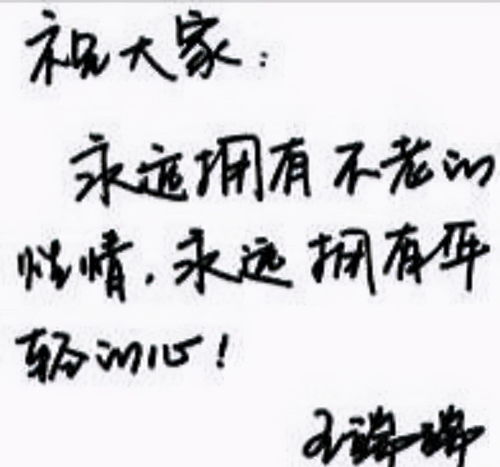 祝大家：
永远拥有不老的
性情，永远拥有年
轻的心！
王端端